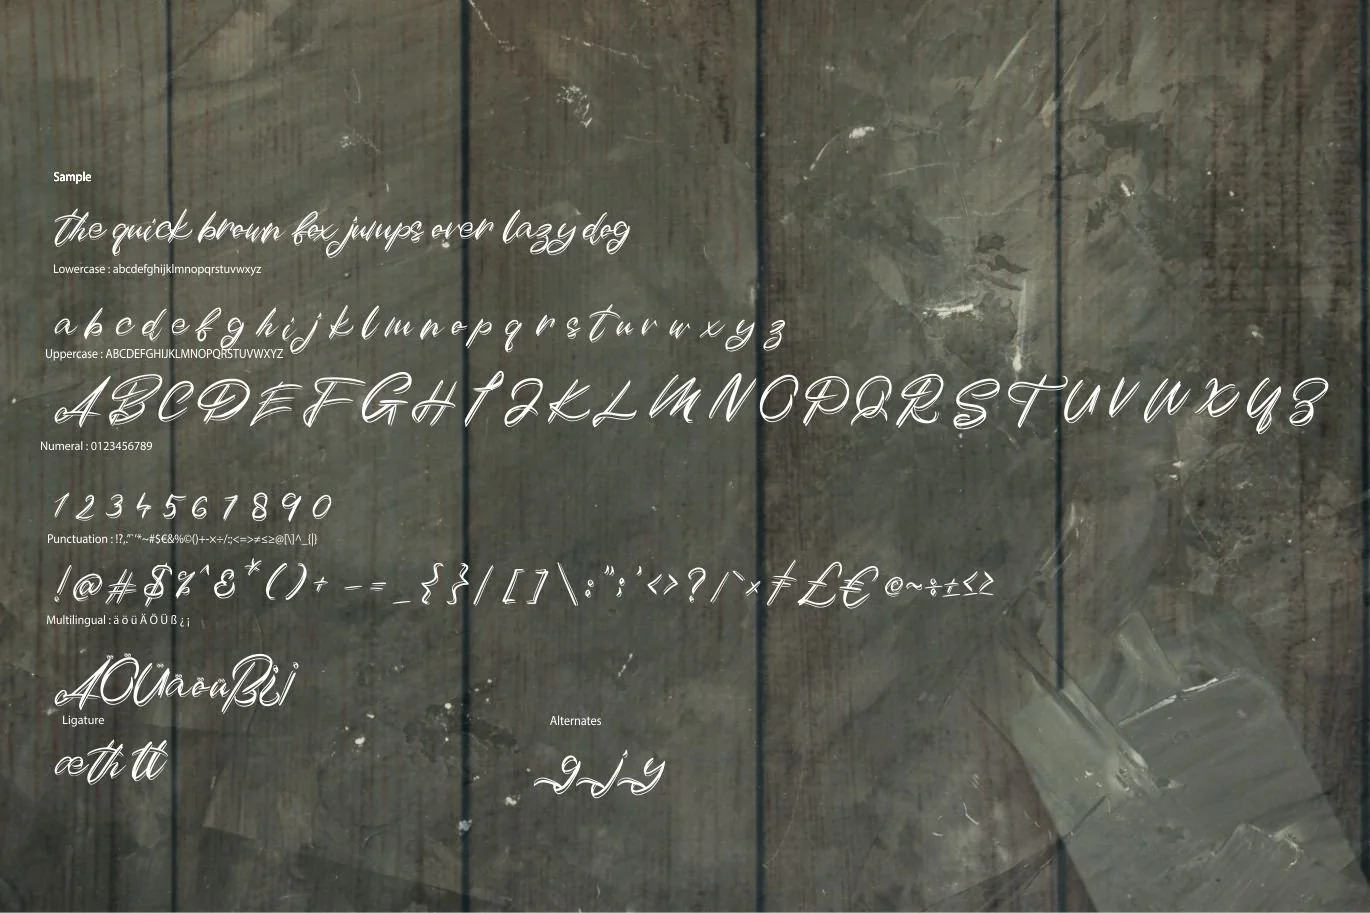 Sample
the quick brown fox jumps over lazy dog
Lowercase : abcdefghijklmnopqrstuvwxyz
a b c d e f g h i j k l m n o p q r s t u v w x y z
Uppercase : ABCDEFGHIJKLMNOPQRSTUVWXYZ
A B C D E F G H I J K L M N O P Q R S T U V W X Y Z
Numeral : 0123456789
1 2 3 4 5 6 7 8 9 0
Punctuation : !?,.":`'*~#$€&%©()+-×÷/:;<=>≠≤≥@[\]^_{|}
! @ # $ % ^ & * ( ) + - = _ { } / [ ] \ : " ; ' < > ? / ` × ≠ £ € © ~ ÷ ± ≤ ≥
Multilingual : ä ö ü Ä Ö Ü ß ¿ ¡
ÄÖÜäöüß¿¡
Ligature
Alternates
æ th tt
g j y